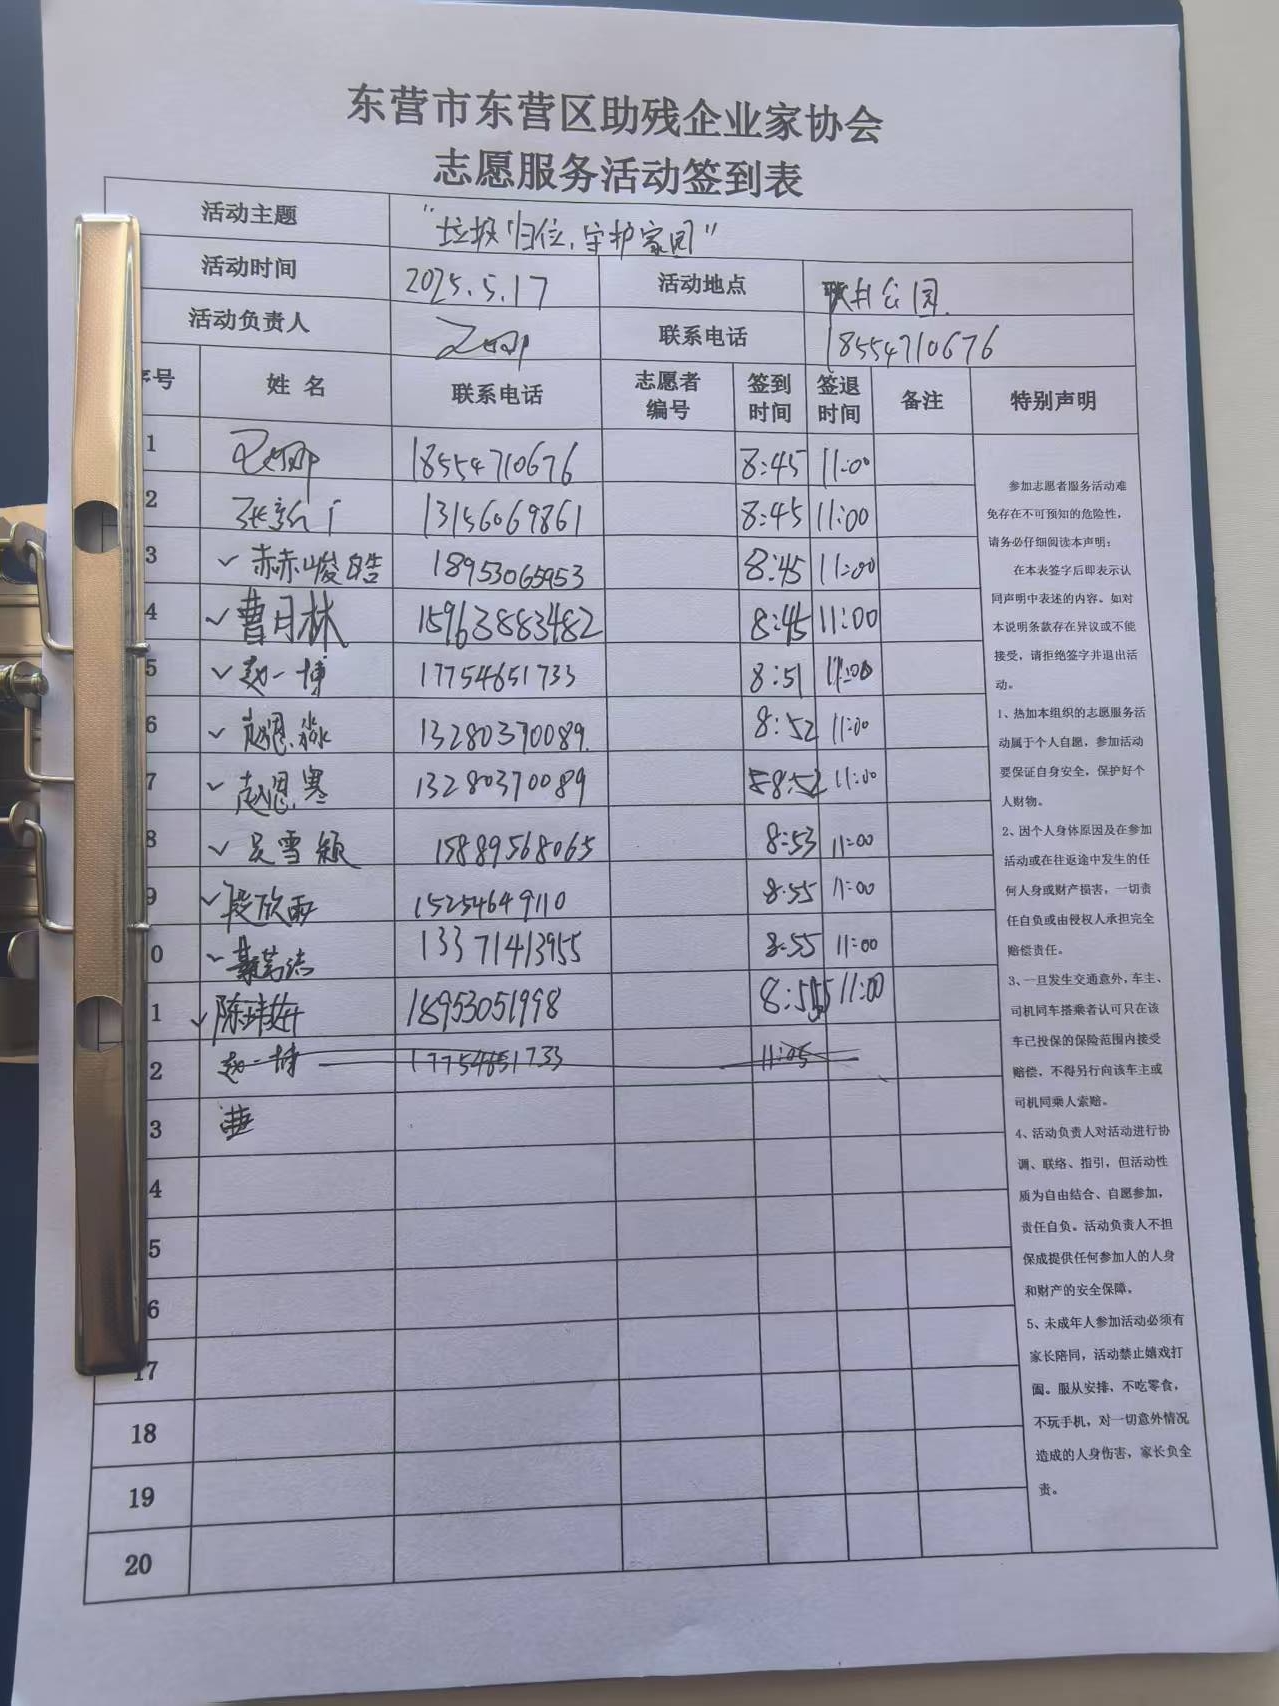 东营市东营区助残企业家协会
志愿服务活动签到表
活动主题 "垃圾归位,守护家园"
活动时间 2025.5.17 活动地点 公园
活动负责人 联系电话 18554710676
序号 姓 名 联系电话 志愿者编号 签到时间 签退时间 备注 特别声明
1 18554710676 8:45 11:00
2 张 13156069861 8:45 11:00
3 ✓ 赫峻皓 18953065953 8:45 11:00
4 ✓ 曹月林 159638883482 8:45 11:00
5 ✓ 赵一博 17754651733 8:51 11:00
6 ✓ 赵恩淼 13280370089. 8:52 11:00
7 ✓ 赵恩寒 13280370089 8:52 11:00
8 ✓ 吴雪颖 15889568065 8:53 11:00
9 ✓ 段欣雨 15254649110 8:55 11:00
0 ✓ 13371413955 8:55 11:00
1 ✓ 陈 18953051998 8:55 11:00
2 赵一博 17754651733 11:05
3
4
5
6
17
18
19
20
参加志愿者服务活动难
免存在不可预知的危险性,
请务必仔细阅读本声明:
在本表签字后即表示认
同声明中表述的内容。如对
本说明条款存在异议或不能
接受,请拒绝签字并退出活
动。
1、热加本组织的志愿服务活
动属于个人自愿,参加活动
要保证自身安全,保护好个
人财物。
2、因个人身体原因及在参加
活动或在往返途中发生的任
何人身或财产损害,一切责
任自负或由侵权人承担完全
赔偿责任。
3、一旦发生交通意外,车主、
司机同车搭乘者认可只在该
车已投保的保险范围内接受
赔偿,不得另行向该车主或
司机同乘人索赔。
4、活动负责人对活动进行协
调、联络、指引,但活动性
质为自由结合、自愿参加,
责任自负。活动负责人不担
保成提供任何参加人的人身
和财产的安全保障。
5、未成年人参加活动必须有
家长陪同,活动禁止嬉戏打
闹。服从安排,不吃零食,
不玩手机,对一切意外情况
造成的人身伤害,家长负全
责。